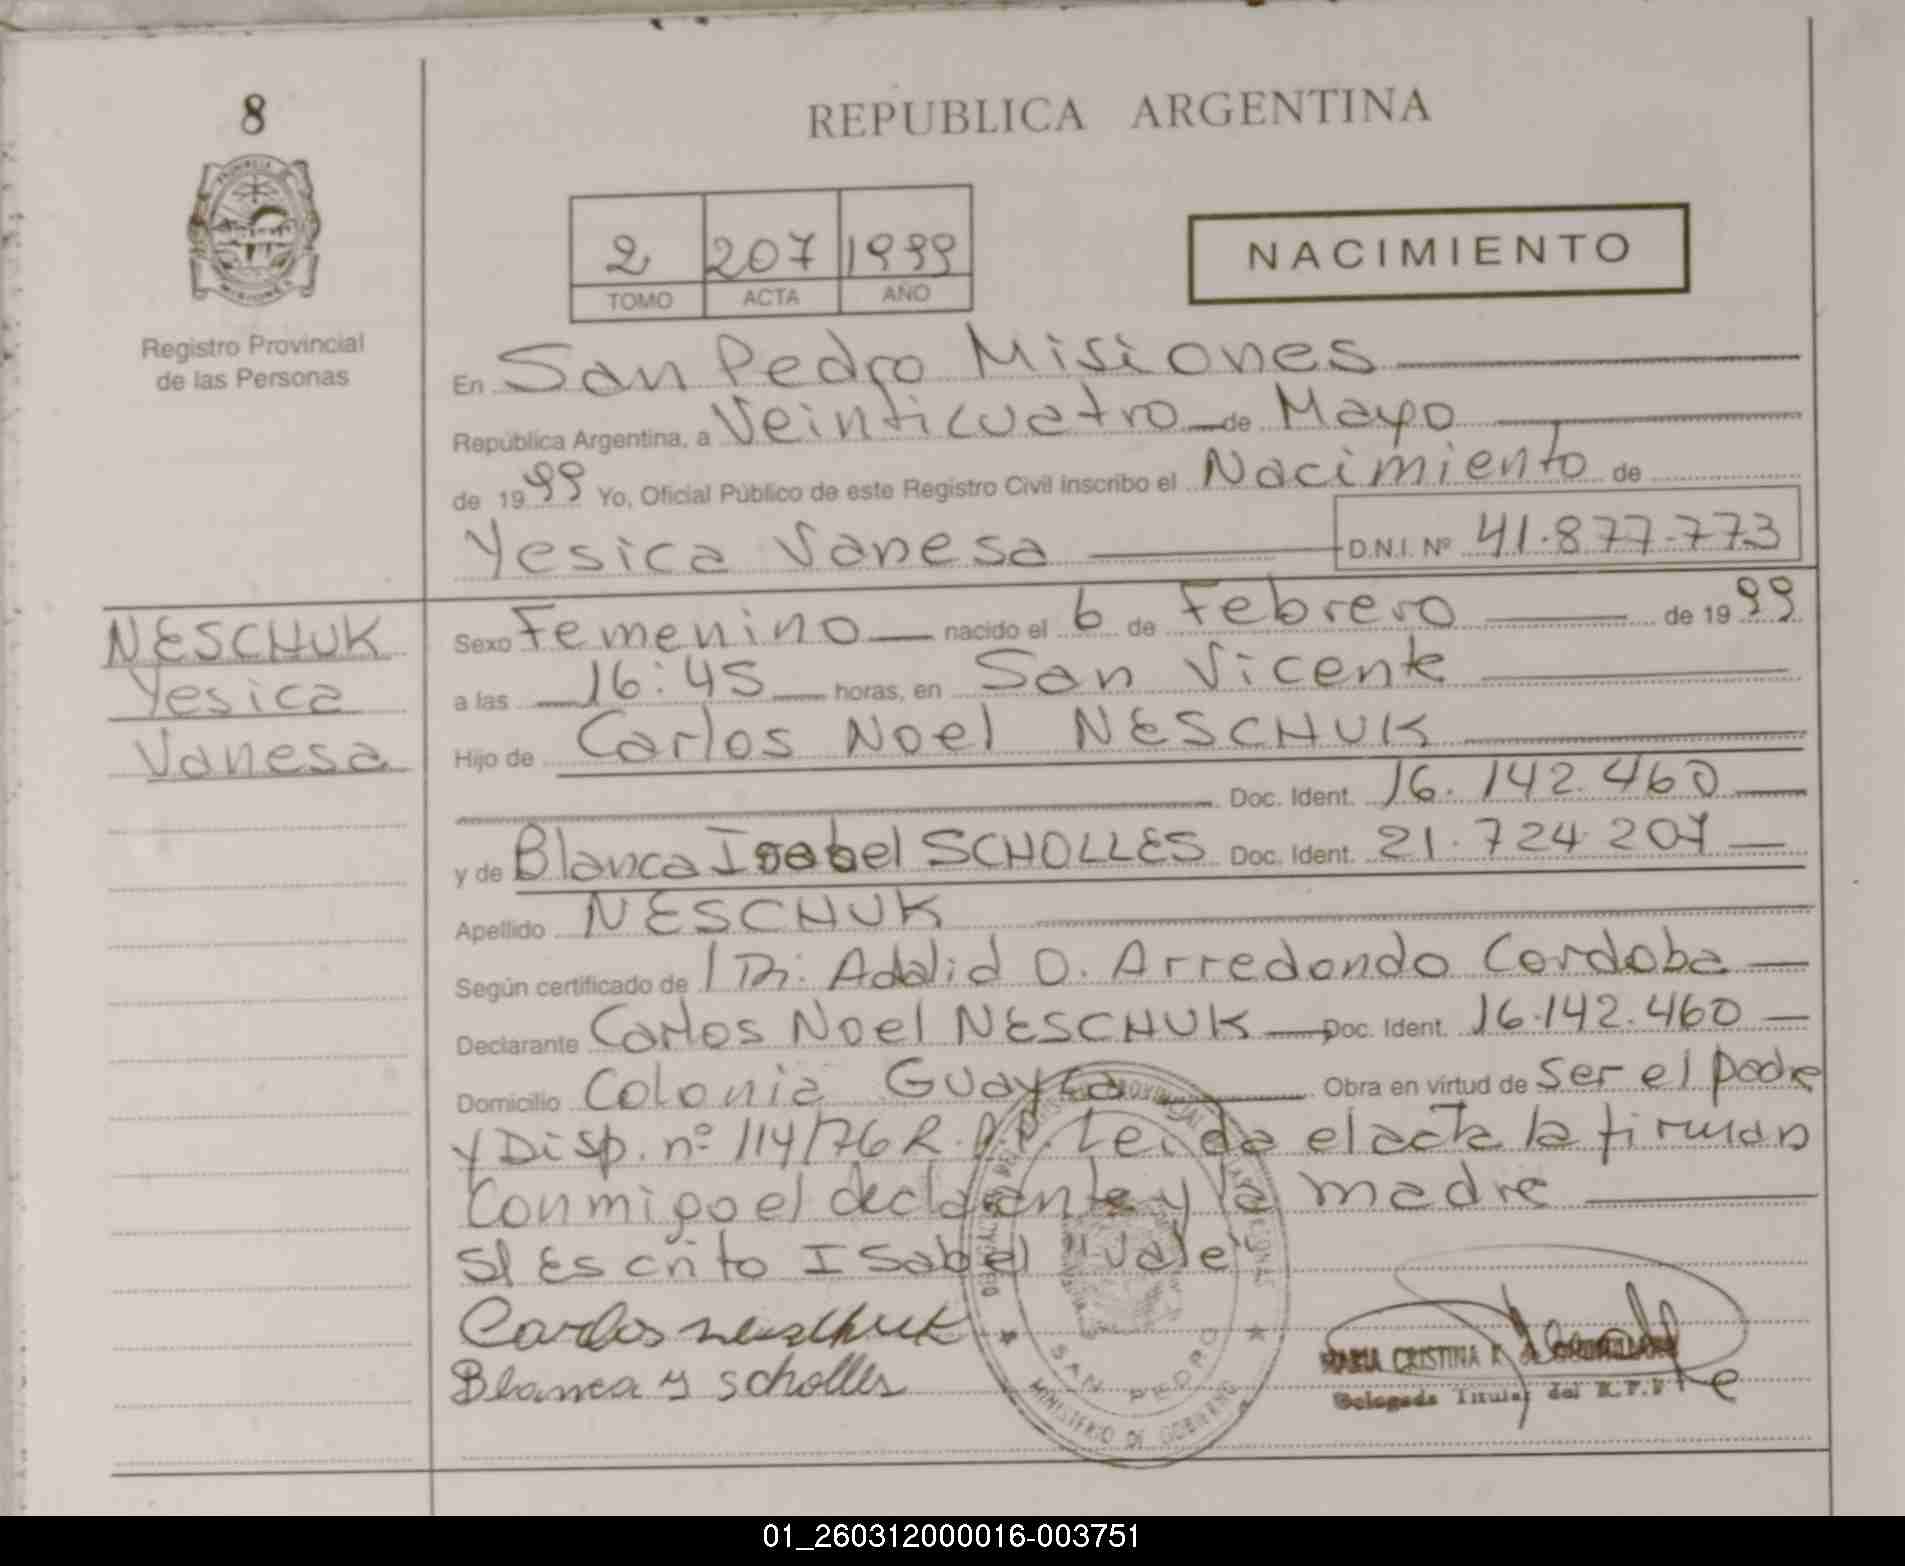 8
PROVINCIA
MISIONES
Registro Provincial
de las Personas
REPUBLICA ARGENTINA
2 207 1999
TOMO ACTA AÑO
NACIMIENTO
En San Pedro Misiones
República Argentina, a Veinticuatro de Mayo
de 1999 Yo, Oficial Público de este Registro Civil inscribo el Nacimiento de
Yesica Vanesa D.N.I. Nº 41.877.773
NESCHUK
Yesica
Vanesa
Sexo Femenino nacido el 6 de Febrero de 1999
a las 16:45 horas, en San Vicente
Hijo de Carlos Noel NESCHUK
Doc. Ident. 16.142.460
y de Blanca Isabel SCHOLLES Doc. Ident. 21.724.207
Apellido NESCHUK
Según certificado de Dr. Adalid O. Arredondo Cordoba
Declarante Carlos Noel NESCHUK Doc. Ident. 16.142.460
Domicilio Colonia Obra en virtud de Ser el padre
y Disp. nº 114/76 R.P.P. Leida el acta la firman
Conmigo el declarante y la madre
S/ Escrito Isabel "Vale"
Carlos neschuk
Blanca y scholles
SAN PEDRO
MINISTERIO DE GOBIERNO
MARIA CRISTINA
Delegada Titular del R.P.P
01_260312000016-003751